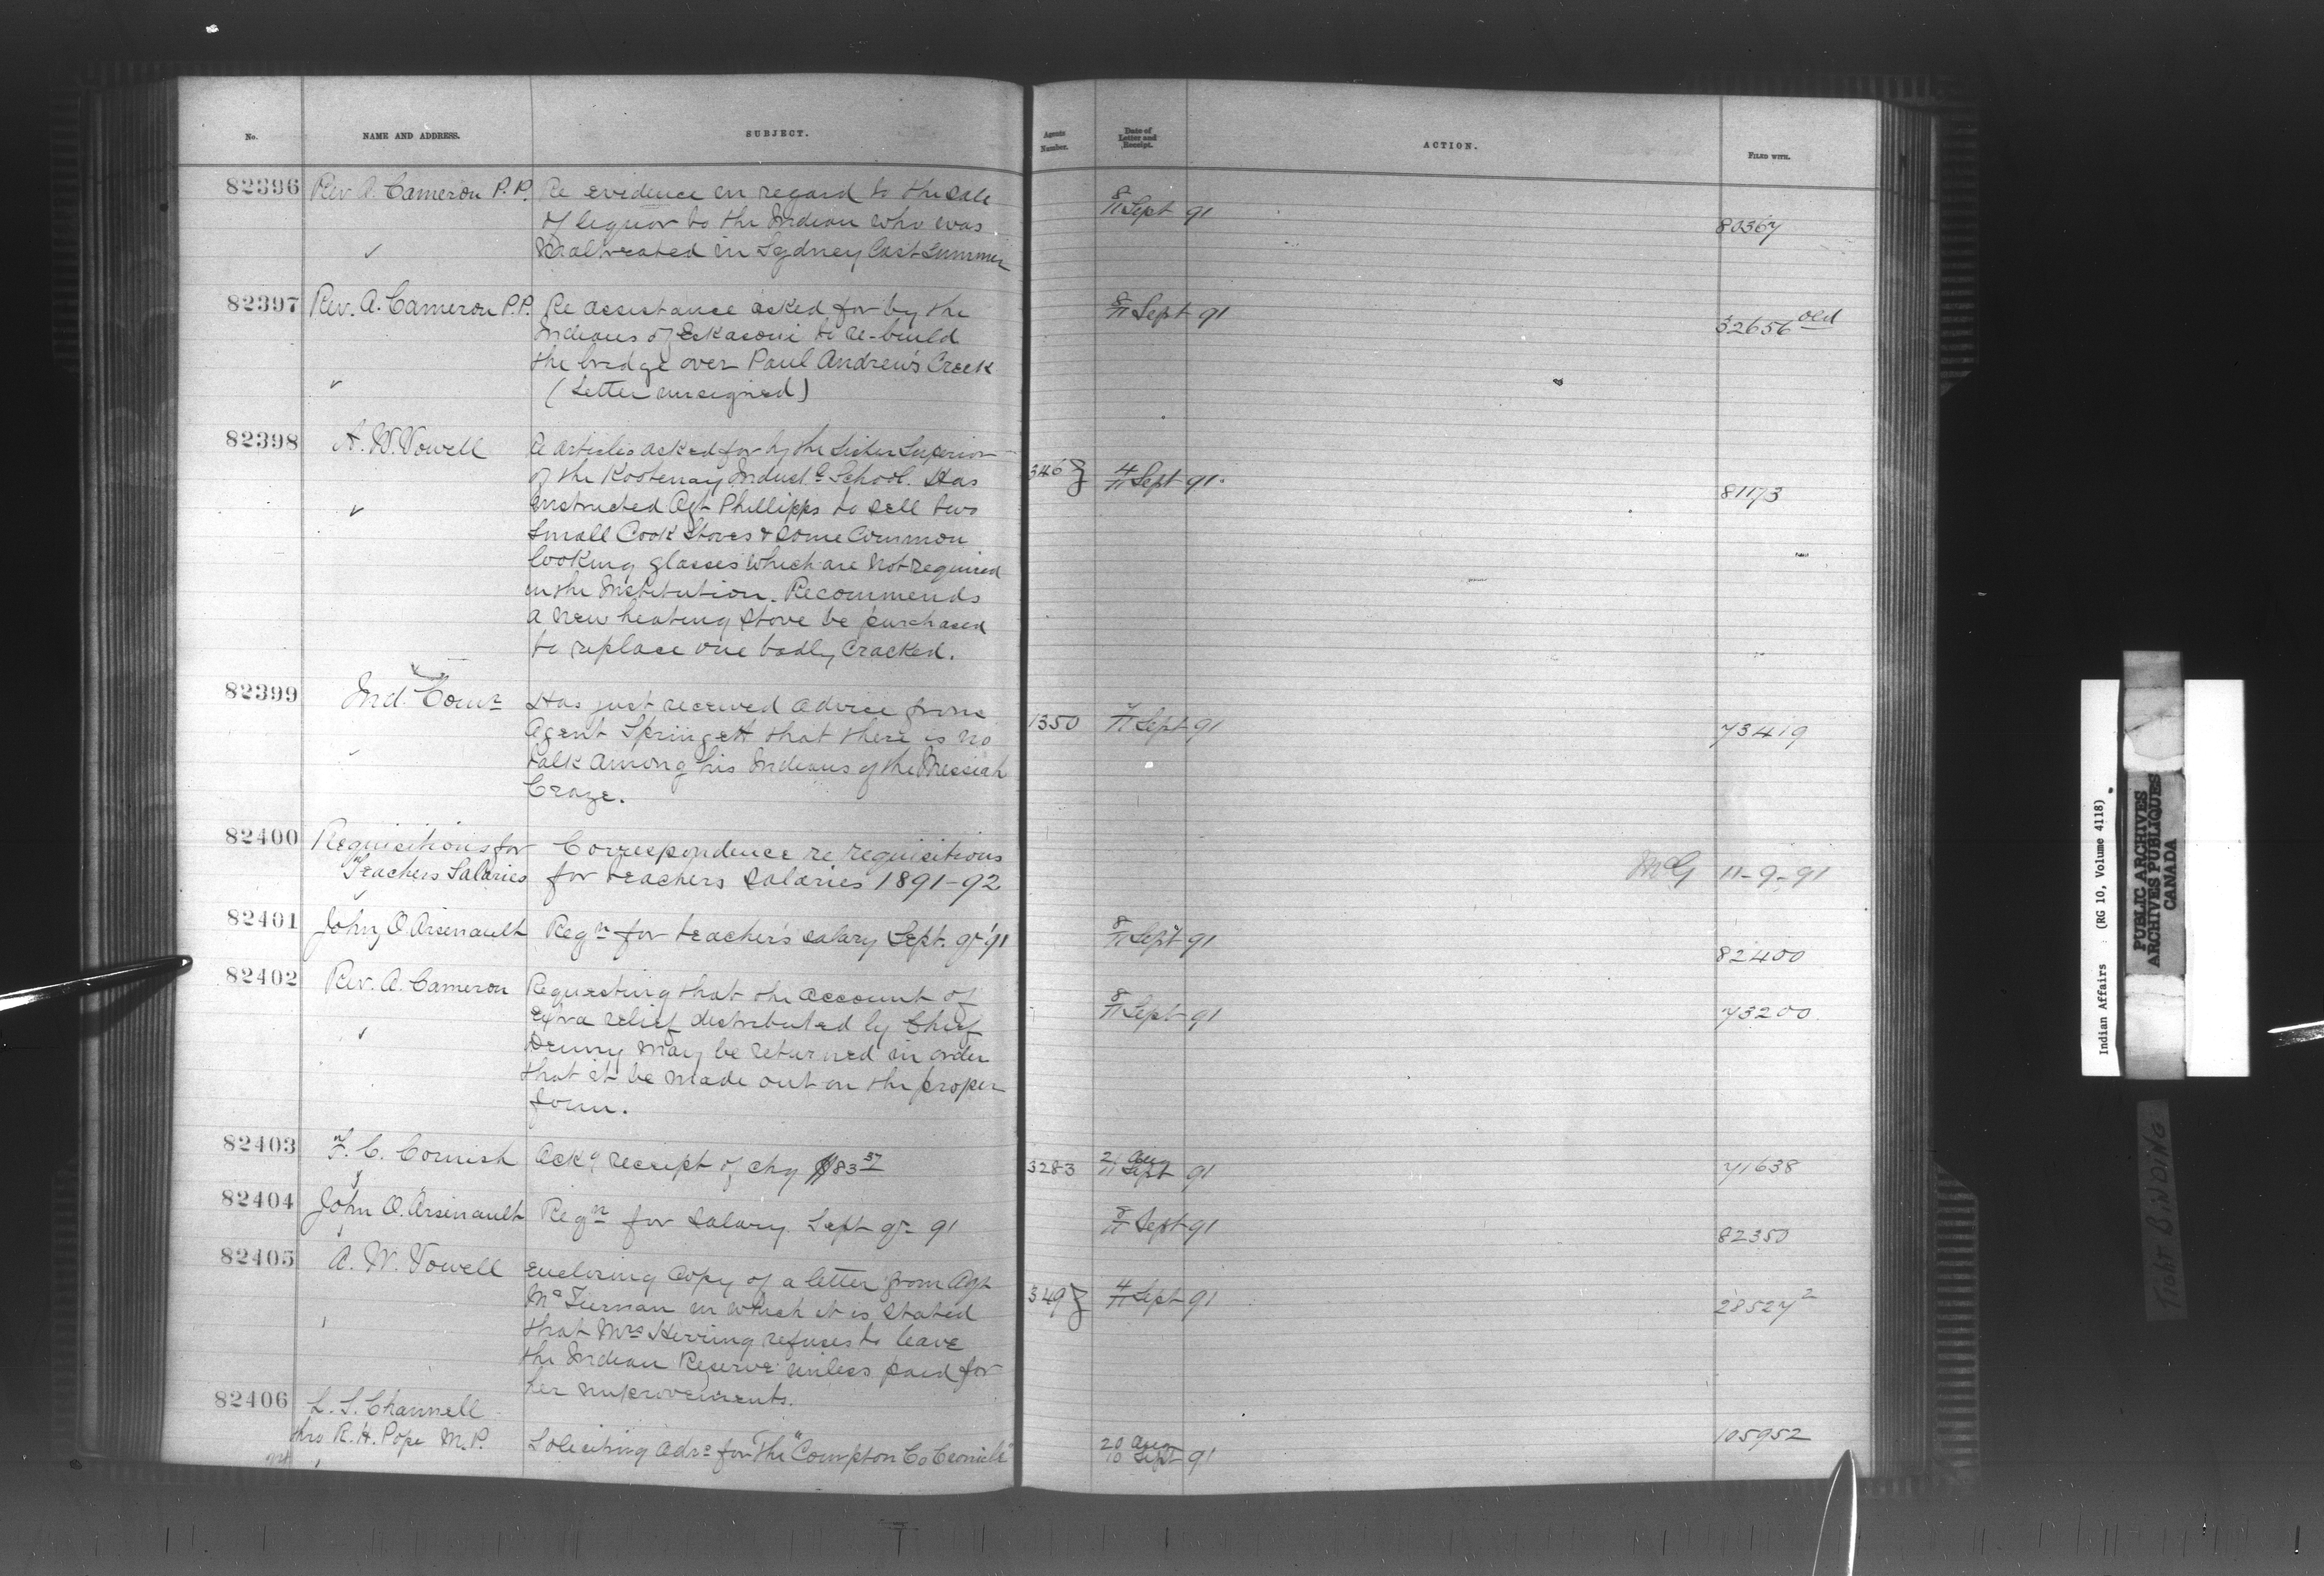 No. NAME AND ADDRESS. SUBJECT. Agents Number. Date of Letter and Receipt. ACTION. FILED WITH.
82396 Rev A. Cameron P.P. Re evidence in regard to the sale
of liquor to the Indian who was 8/11 Sept 91 80367
Maltreated in Sydney Last Summer
82397 Rev. A. Cameron P.P. Re assistance asked for by the 8/11 Sept 91
Indians of Eskasoni to re-build 32656 old
the bridge over Paul Andrew's Creek
(Letter unsigned)
82398 A. W. Vowell Re articles asked for by the Sister Superior
of the Kootenay Indust.l School. Has 346 4/11 Sept 91. 81173
instructed Agt Phillipps to sell two
Small Cook Stoves & some Common
looking glasses which are not required
in the Institution. Recommends
a new heating stove be purchased
to replace one badly cracked.
82399 Ind. Comr Has just received advice from
Agent Springett that there is no 1350 7/11 Sept 91 73419
talk among his Indians of the Messiah
Craze.
82400 Requisitions for Correspondence re requisitions
Teachers Salaries for teachers salaries 1891-92 McG 11-9-91
82401 John O. Arsenault Reqn for teacher's salary Sept. qr '91 8/11 Sept 91 82400
82402 Rev. A. Cameron Requesting that the account of
extra relief distributed by Chief 8/11 Sept 91 73200
Denny may be returned in order
that it be made out on the proper
form.
82403 F. C. Cornish Ackg receipt of chq $83 37 3283 21 Aug 11 Sept 91 71638
82404 John O. Arsenault Reqn for Salary Sept qr 91 8/11 Sept 91 82350
82405 A. W. Vowell enclosing Copy of a letter from Agt
McTiernan in which it is stated 349 4/11 Sept 91 28527 2
that Mrs Herring refuses to leave
the Indian Reserve unless paid for
her improvements.
82406 L. S. Channell
thro R. H. Pope M.P. Soliciting advs for The "Compton Co Cronicle" 20 Aug 10 Sept 91 105952
Indian Affairs : (RG 10, Volume 4118)
PUBLIC ARCHIVES
ARCHIVES PUBLIQUES
CANADA
TIGHT BINDING